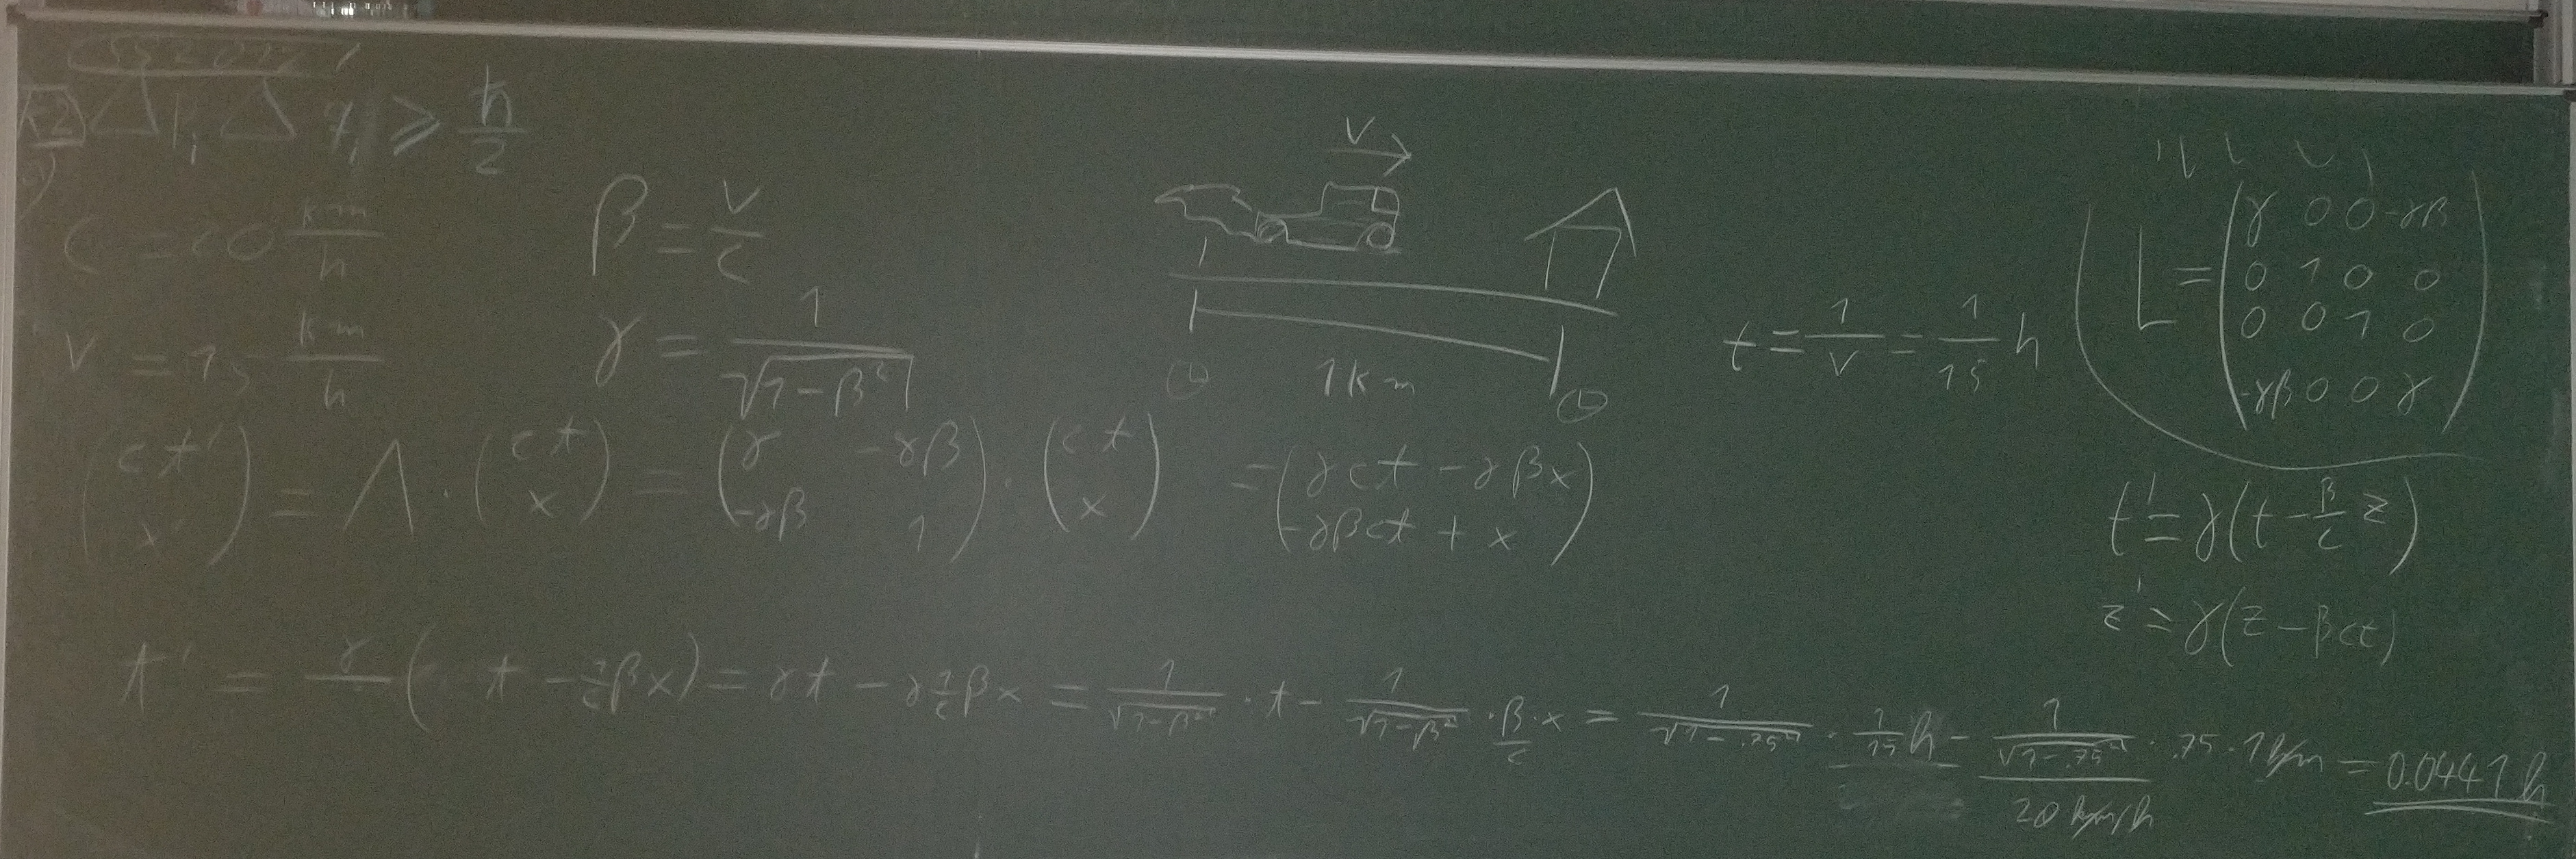 SS 2017
Δp_i Δq_i ≥ ħ/2
c = 20 km/h
v = 15 km/h
β = v/c
γ = 1/√(1-β²)
v
1 km
t = 1/v = 1/15 h
L = (γ 0 0 -γβ
0 1 0 0
0 0 1 0
-γβ 0 0 γ)
(ct' x') = Λ · (ct x) = (γ -γβ -γβ 1) · (ct x) = (γct - γβx -γβct + x)
t' = γ(t - β/c z)
z' = γ(z - βct)
t' = γ(t - 1/c βx) = γt - γ 1/c βx = 1/√(1-β²) · t - 1/√(1-β²) · β/c · x = 1/√(1-.75²) · 1/15 h - 1/√(1-.75²) / 20 km/h · .75 · 1 km = 0.0441 h